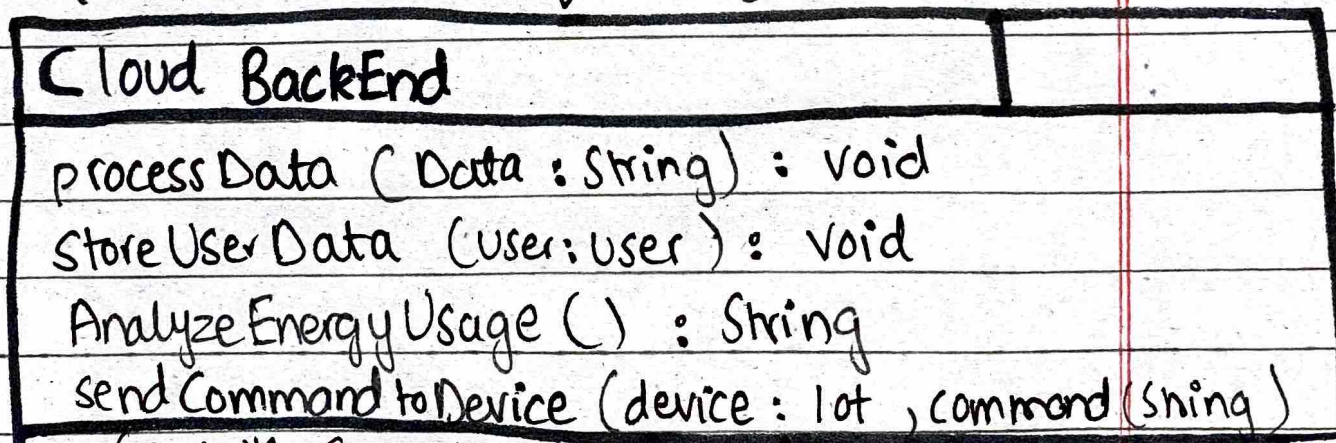 Cloud BackEnd
processData (Data : String) : void
StoreUserData (user: user) : void
AnalyzeEnergyUsage () : String
sendCommandtoDevice (device : Iot , command (String)